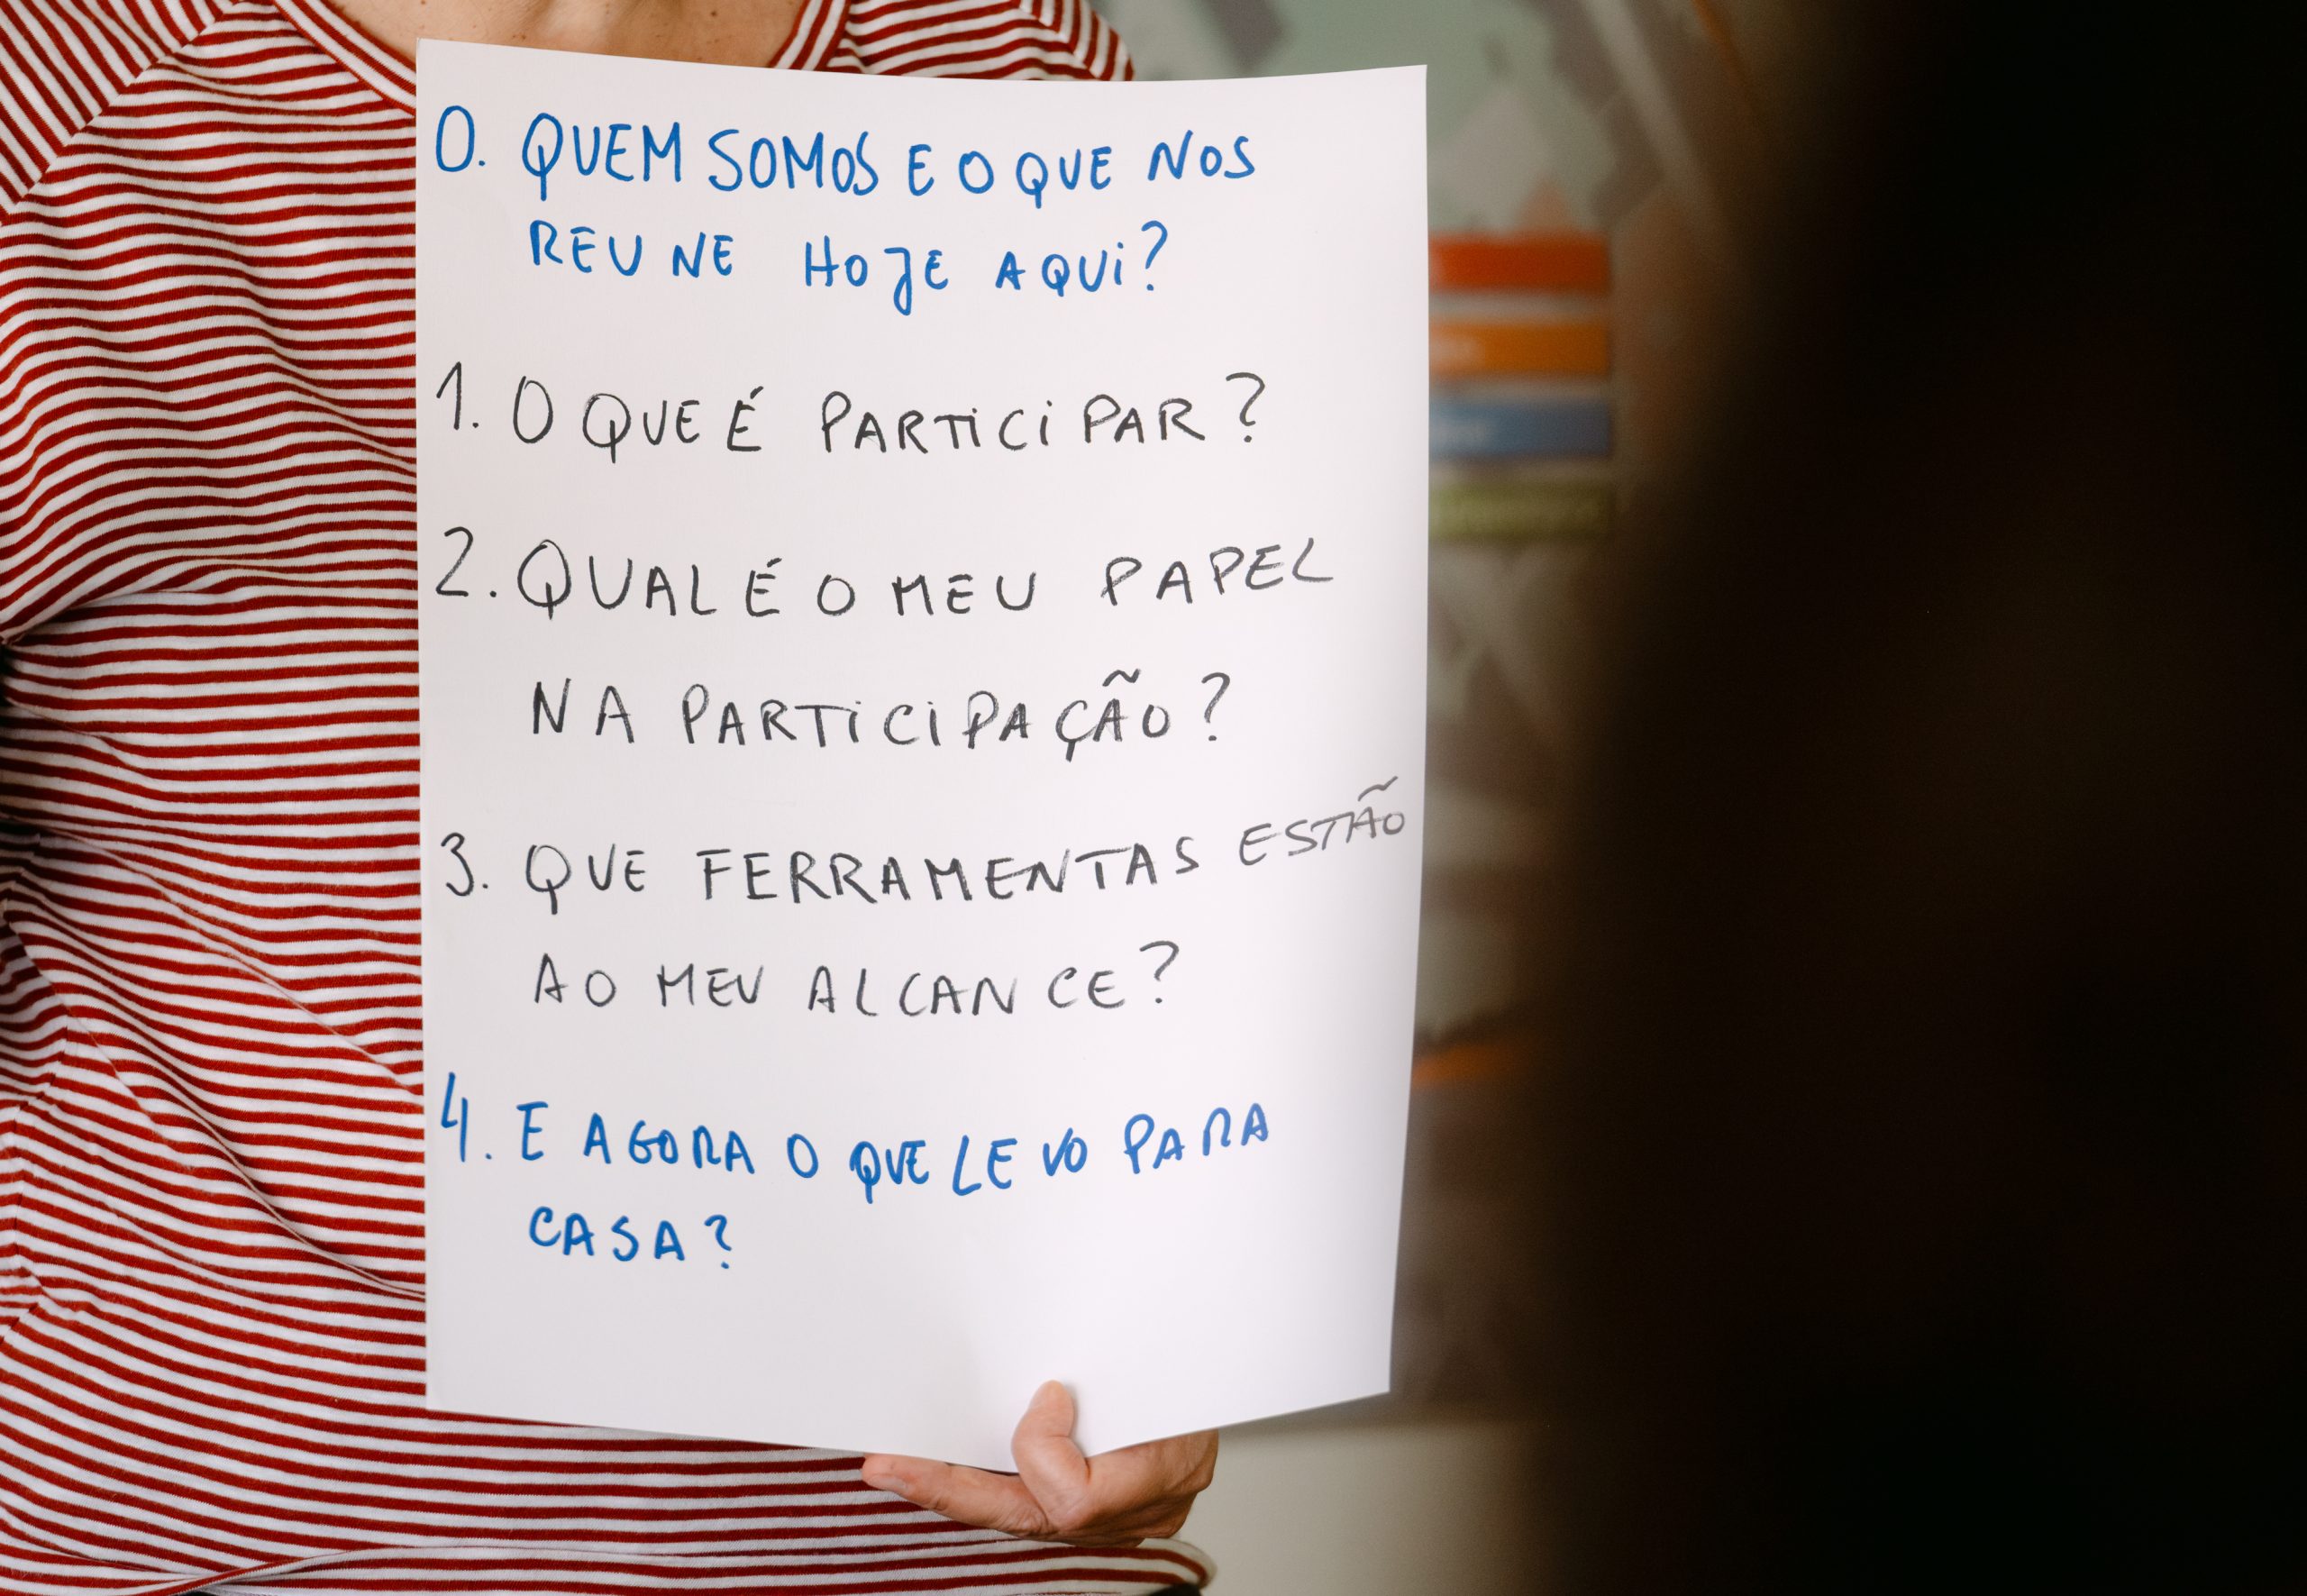 0. QUEM SOMOS E O QUE NOS
REUNE HOJE AQUi?
1. O QUE É PARTiCiPAR?
2. QUAL É O MEU PAPEL
NA PARTiCiPAÇÃO?
3. QUE FERRAMENTAS ESTÃO
AO MEU ALCANCE?
4. E AGORA O QUE LEVO PARA
CASA?